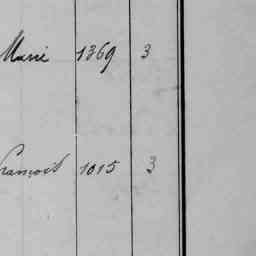 Marie 1369 3
François 1015 3